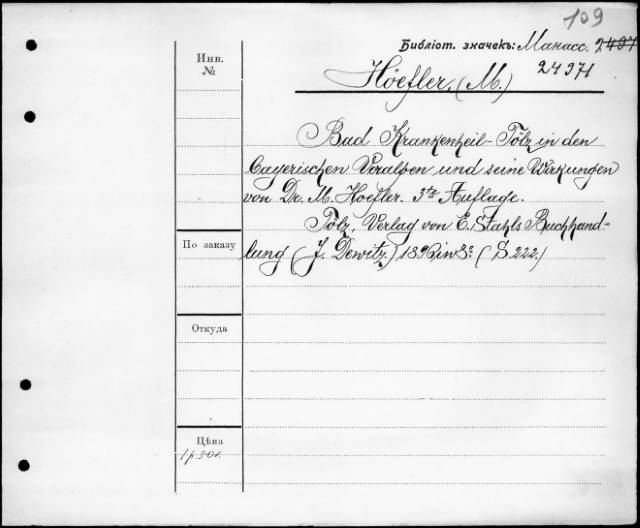 109
Библіот. значекъ: Манасс. 2497
24971
Инв.
№
Höefler, (M.)
Bad Krankenheil-Tölz in den
bayerischen Voralpen und seine Wirkungen
von Dr. M. Hoefler. 3te Auflage.
Tölz, Verlag von E. Stahls Buchhand-
По заказу
lung (J. Dewitz.) 1896 in 8º. (S 222.)
Откуда
Цѣна
1 р 50 к.